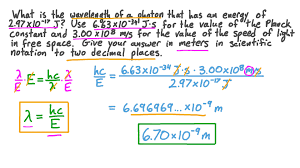 What is the wavelength of a photon that has an energy of
2.97×10⁻¹⁷ J? Use 6.63×10⁻³⁴ J·s for the value of the Planck
constant and 3.00×10⁸ m/s for the value of the speed of light
in free space. Give your answer in meters in scientific
notation to two decimal places.
λE/E = hcλ/λE
hc/E = 6.63×10⁻³⁴ J·s · 3.00×10⁸ m/s / 2.97×10⁻¹⁷ J
= 6.696969...×10⁻⁹ m
λ = hc/E
6.70×10⁻⁹ m